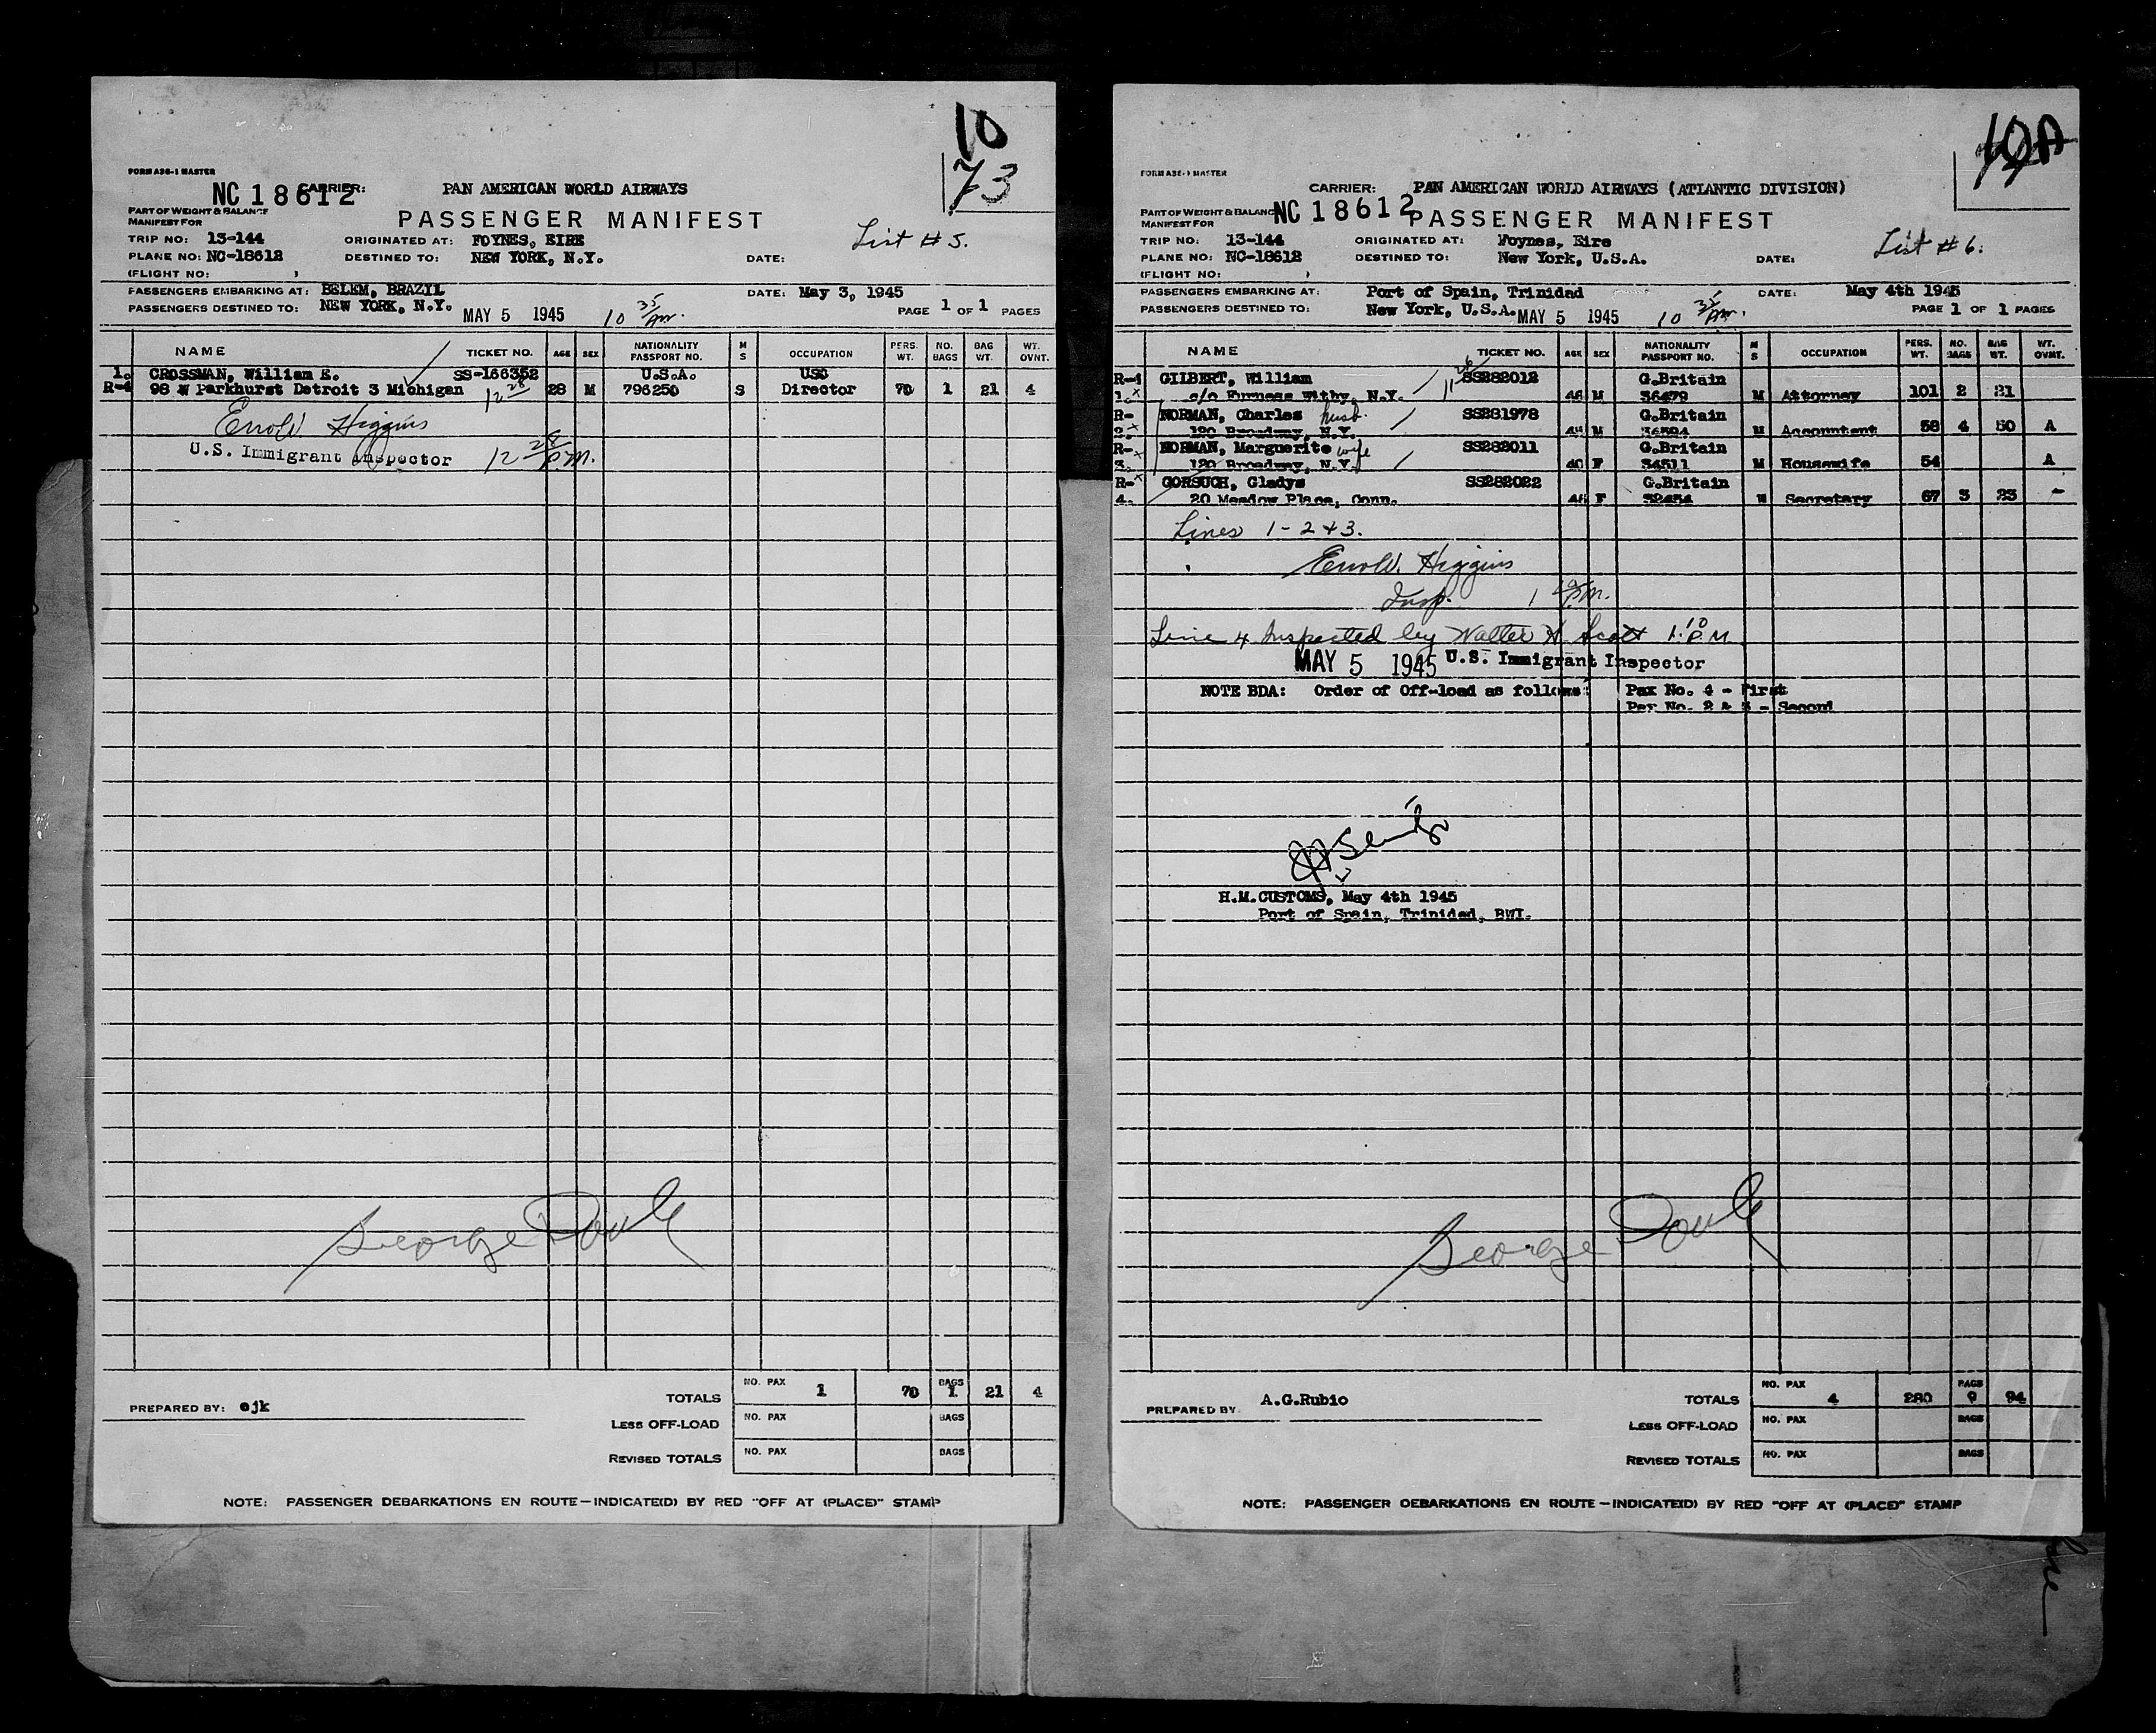 10
73
FORM A36-1 MASTER
NC 18612 CARRIER: PAN AMERICAN WORLD AIRWAYS
PART OF WEIGHT & BALANCE
MANIFEST FOR
PASSENGER MANIFEST
TRIP NO: 13-144 ORIGINATED AT: FOYNES, EIRE List # 5.
PLANE NO: NC-18612 DESTINED TO: NEW YORK, N.Y. DATE:
(FLIGHT NO: )
PASSENGERS EMBARKING AT: BELEM, BRAZIL DATE: May 3, 1945
PASSENGERS DESTINED TO: NEW YORK, N.Y. MAY 5 1945 10 35 AM. PAGE 1 OF 1 PAGES
NAME TICKET NO. AGE SEX NATIONALITY PASSPORT NO. M S OCCUPATION PERS. WT. NO. BAGS BAG WT. WT. OVNT.
1. CROSSMAN, William E. SS-166352 U.S.A. USO
R-4 98 W Parkhurst Detroit 3 Michigan 12 28 28 M 796250 S Director 70 1 21 4
Errol W. Higgins
U.S. Immigrant Inspector 12 28 P.M.
George Doule
TOTALS NO. PAX 1 70 BAGS 1 21 4
PREPARED BY: ejk
LESS OFF-LOAD NO. PAX BAGS
REVISED TOTALS NO. PAX BAGS
NOTE: PASSENGER DEBARKATIONS EN ROUTE—INDICATE(D) BY RED "OFF AT (PLACE)" STAMP
10A
FORM A36-1 MASTER
CARRIER: PAN AMERICAN WORLD AIRWAYS (ATLANTIC DIVISION)
PART OF WEIGHT & BALANC
MANIFEST FOR
NC 18612 PASSENGER MANIFEST
TRIP NO: 13-144 ORIGINATED AT: Foynes, Eire List # 6.
PLANE NO: NC-18612 DESTINED TO: New York, U.S.A. DATE:
(FLIGHT NO: )
PASSENGERS EMBARKING AT: Port of Spain, Trinidad DATE: May 4th 1945
PASSENGERS DESTINED TO: New York, U.S.A. MAY 5 1945 10 35 AM. PAGE 1 OF 1 PAGES
NAME TICKET NO. AGE SEX NATIONALITY PASSPORT NO. M S OCCUPATION PERS. WT. NO. BAGS BAG WT. WT. OVNT.
R-1 GILBERT, William SS282012 G.Britain
1. c/o Furness Withy, N.Y. 46 M 36479 M Attorney 101 2 21
R- NORMAN, Charles husb. SS281978 G.Britain
2. 120 Broadway, N.Y. M M Accountant 58 4 50 A
R- NORMAN, Marguerite wife SS282011 G.Britain
3. 120 Broadway, N.Y. 40 F 34511 M Housewife 54 A
R- GORSUCH, Gladys SS282022 G.Britain
4. 20 Meadow Place, Conn. F 32454 Secretary 67 3 23 -
Lines 1-2 & 3.
Errol W. Higgins
Insp. 1 P.M.
Line 4 Inspected by Walter H. Scott 1:10 P.M.
MAY 5 1945 U.S. Immigrant Inspector
NOTE BDA: Order of Off-load as follows: Pax No. 4 - First
Pax No. 2 & 3 - Second
H.M.CUSTOMS, May 4th 1945
Port of Spain, Trinidad, BWI.
George Doule
TOTALS NO. PAX 4 280 BAGS 9 94
PREPARED BY A.G.Rubio
LESS OFF-LOAD NO. PAX BAGS
REVISED TOTALS NO. PAX BAGS
NOTE: PASSENGER DEBARKATIONS EN ROUTE—INDICATE(D) BY RED "OFF AT (PLACE)" STAMP